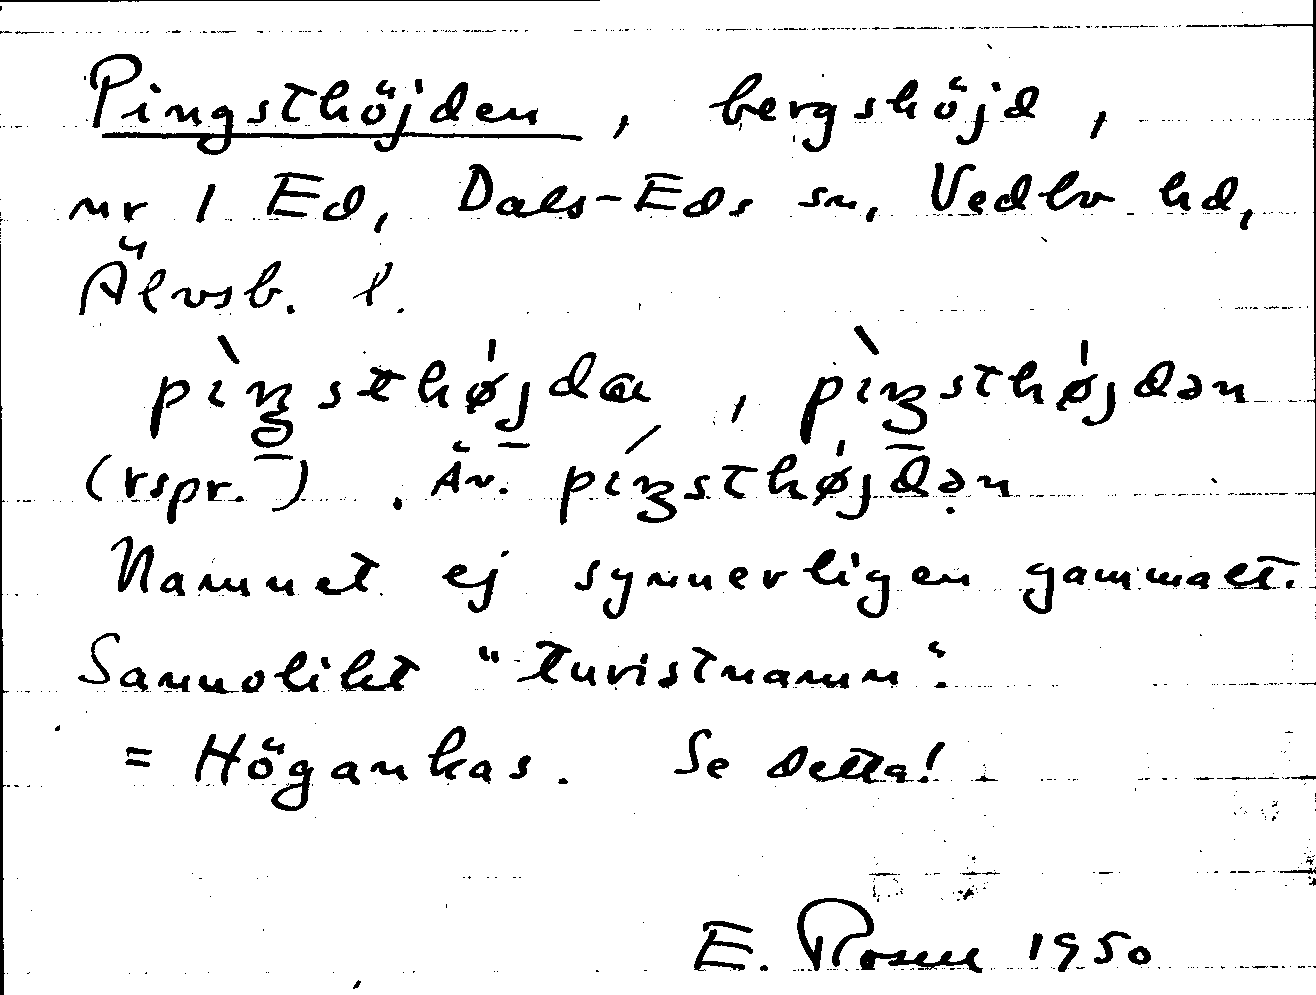 Pingsthöjden, bergshöjd,
nr 1 Ed, Dals-Eds sn, Vedbo hd,
Älvsb. l.
pìŋsthø̍jda, pìŋsthø̍jdən
(rspr.). Äv. píŋsthø̍jdən
Namnet ej synnerligen gammalt.
Sannolikt "turistnamn".
= Högankas. Se detta!
E. Rosell 1950